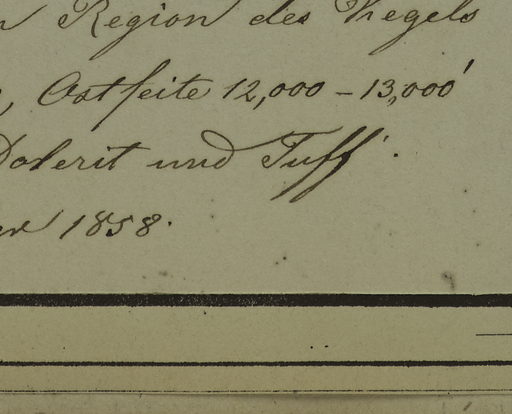 Region des Kegels
, Ostseite 12,000 – 13,000'
Dolerit und Tuff.
1858.